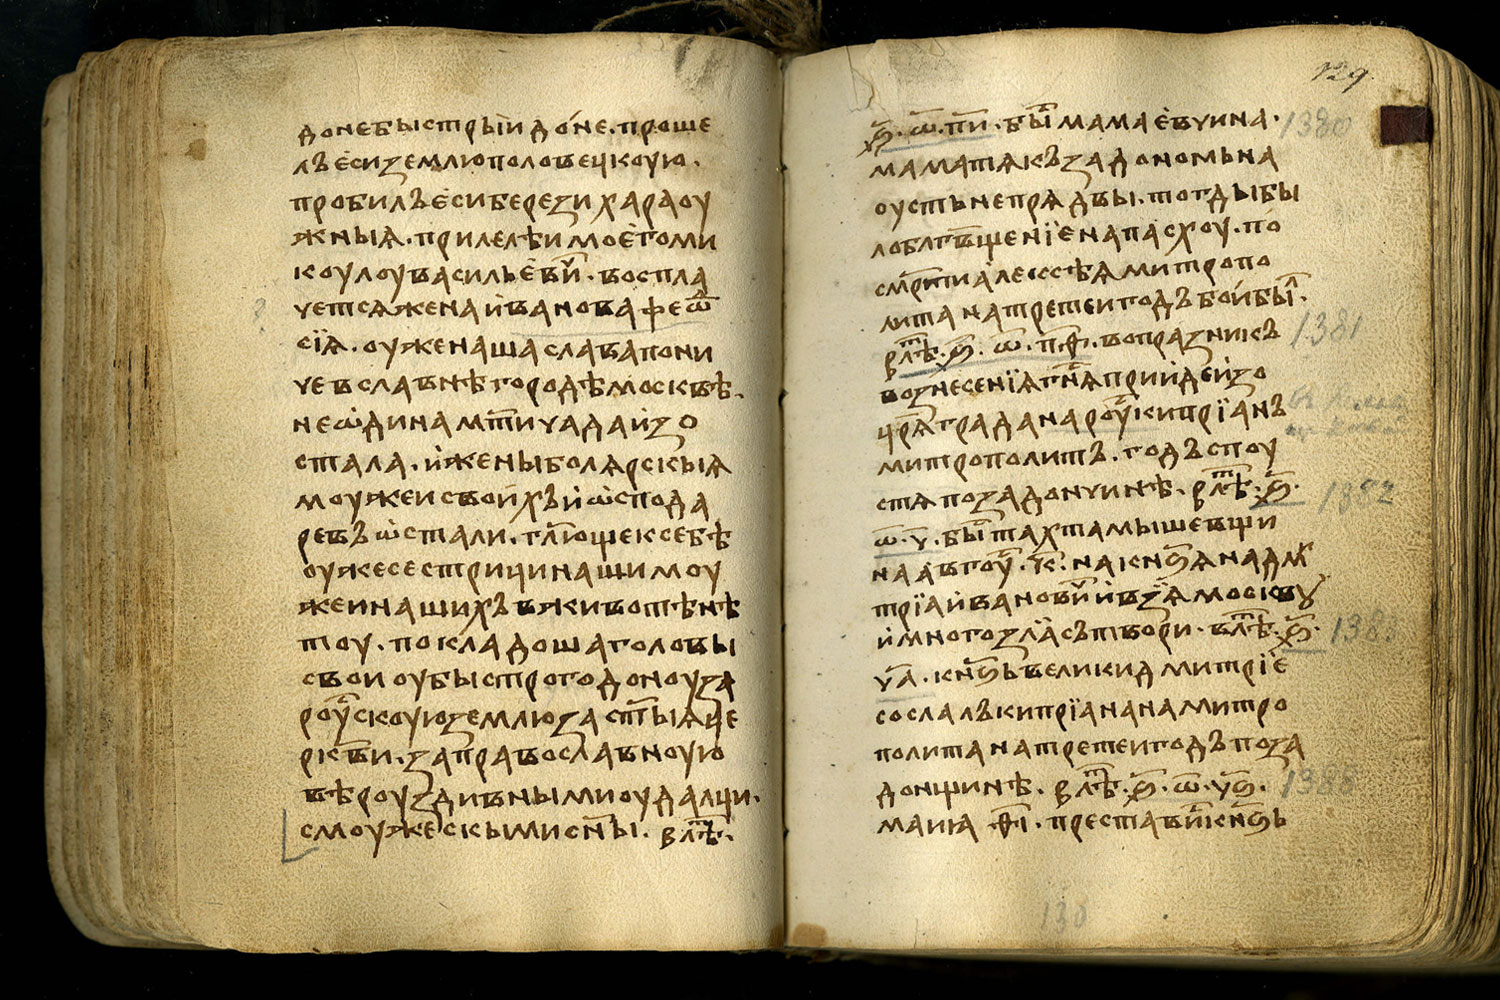 доне быстрыи до́не. проше
лъ є́си землю половецкоую.
пробилъ є́си берези хараоу
жныꙗ. прилелѣи моє́го ми
коулоу васильє́ви҃. воспла
четсѧ жена и҆ванова феѡ҃
сїꙗ. оуже наша слава пони
че в славнѣ городѣ москвѣ.
не ѡ҆дина мт҃и чада и҆зо
стала. и҆ жены болѧрскыꙗ
моужеи свои҆хъ и҆ ѡ҆спода
ревъ ѡ҆стали. гл҃юще к себѣ
оуже сестрици наши моу
жеи нашихъ в животѣ нѣ
тоу. покладоша головы
свои оу быстрого доноу за
роу҃скоую землю за ст҃ыꙗ це
ркви. за православноую
вѣроу з дивными оудалци.
с моужескыми сн҃ы. в лѣ҃т.
129
҂ѕ҃. ѡ҃. п҃и. бы҃ мамає́вчина. 1380
мамай такъ за дономъ на
оусть непрѧдвы. тогды бы
ло блг҃вѣщенїе на пасхоу. по́
см҃рти алеѯѣꙗ митропо
лита на третеи годъ бои бы҃.
в лѣ҃т. ҂ѕ҃. ѡ҃. п҃ѳ. во праздникъ 1381
вознесенїꙗ гн҃ꙗ прии҆де и҆зо
цр҃ѧграда на роу҃ кипрїанъ
митрополитъ. годъ споу
стѧ по задончинѣ. в лѣ҃т. ҂ѕ҃. 1382
ѡ҃. ч҃. бы҃ тахтамышевщи
на а҆вгоу҃. к҃ѕ. на кн҃зѧ на дми
трїа и҆ванови҃ и҆ взѧ҃ москвꙋ
и҆ много зла̀ сътвори. в лѣ҃т. ҂ѕ҃. 1383
ч҃а. кн҃зь великии дмитрїе
сослалъ кипрїана на митро
полита на третеи годъ по за
донщинѣ. в лѣ҃т. ҂ѕ҃. ѡ҃. ч҃ѕ. 1388
маиꙗ ѳ҃і. преставис҃ кн҃зь
130